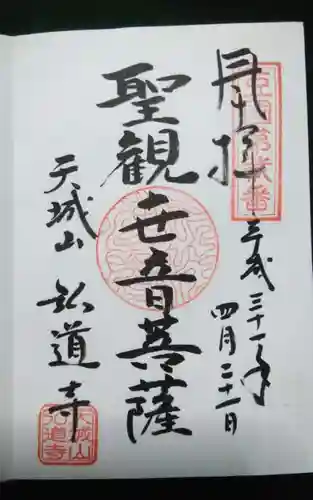 奉拝
豆国第弐番
平成三十一年
四月二十一日
聖観世音菩薩
天城山
弘道寺
天城山
弘道寺